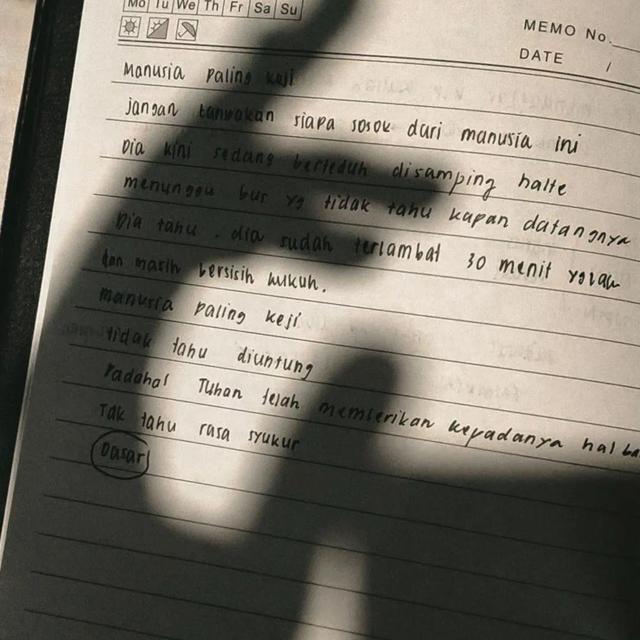 Mo Tu We Th Fr Sa Su
MEMO No.
DATE /
Manusia paling keji
jangan tanyakan siapa sosok dari manusia ini
Dia kini sedang berteduh disamping halte
menunggu bus yg tidak tahu kapan datangnya
Dia tahu . dia sudah terlambat 30 menit yglalu
dan masih bersisih kukuh.
manusia paling keji
tidak tahu diuntung
Padahal Tuhan telah memberikan kepadanya hal ba
Tak tahu rasa syukur
Dasar